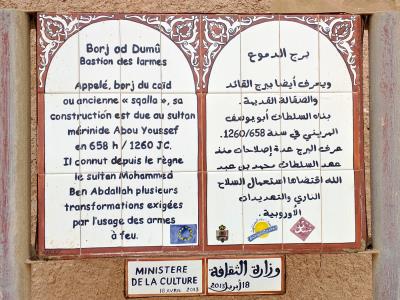 Borj ad Dumû
Bastion des larmes
Appelé, borj du caïd
ou ancienne « sqalla », sa
construction est due au sultan
mérinide Abou Youssef
en 658 h / 1260 JC.
Il connut depuis le règne
le sultan Mohammed
Ben Abdallah plusieurs
transformations exigées
par l'usage des armes
à feu.
برج الدموع
ويعرف أيضا ببرج القائد
والصقالة القديمة.
بناه السلطان أبو يوسف
المريني في سنة 1260/658.
عرف البرج عدة إصلاحات منذ
عهد السلطان محمد بن عبد
الله اقتضاها استعمال السلاح
الناري والتهديدات
الأوروبية.
MINISTERE DE
LA CULTURE
18 AVRIL 2013
وزارة الثقافة
18 أبريل 2013